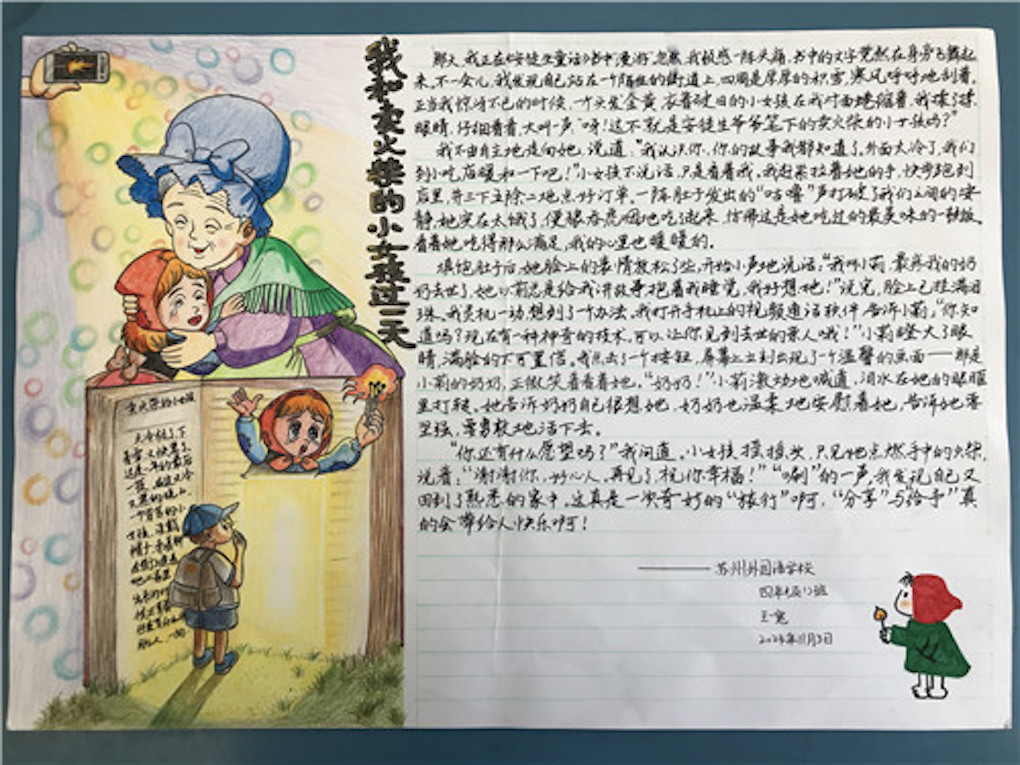 我和卖火柴的小女孩过一天
那天,我正在《安徒生童话》书中“漫游”,忽然,我顿感一阵头痛,书中的文字竟然在身旁飞舞起
来。不一会儿,我发现自己站在一个陌生的街道上,四周是厚厚的积雪,寒风呼呼地刮着。
正当我惊讶不已的时候,一个头发金黄、衣着破旧的小女孩在我对面蜷缩着,我揉了揉
眼睛,仔细看看,大叫一声:“呀!这不就是安徒生爷爷笔下的卖火柴的小女孩吗?”
我不由自主地走向她,说道:“我认识你,你的故事我都知道了。外面太冷了,我们
到小吃店暖和一下吧!”小女孩不说话,只是看着我。我赶紧拉着她的手,快步跑到
店里,并三下五除二地点好订单,一阵肚子发出的“咕噜”声打破了我们之间的安
静,她实在太饿了,便狼吞虎咽地吃了起来,仿佛这是她吃过的最美味的一顿饭。
看着她吃得那么满足,我的心里也暖暖的。
填饱肚子后,她脸上的表情放松了些,开始小声地说话:“我叫小莉,最疼我的奶
奶去世了,她以前总是给我讲故事,抱着我睡觉,我好想她!”说完,脸上已挂满泪
珠。我灵机一动,想到了个办法,我打开手机上的视频通话软件,告诉小莉:“你知
道吗?现在有一种神奇的技术,可以让你见到去世的亲人哦!”小莉瞪大了眼
睛,满脸的不可置信。我点击了一个按钮,屏幕上立刻出现了一个温馨的画面——那是
小莉的奶奶,正微笑着看着她。“奶奶!”小莉激动地喊道,泪水在她的眼眶
里打转。她告诉奶奶自己很想她,奶奶也温柔地安慰着她,告诉她要
坚强,要勇敢地活下去。
“你还有什么愿望吗?”我问道。小女孩摇摇头,只见她点燃手中的火柴,
说着:“谢谢你,好心人,再见了,祝你幸福!”“唰”的一声,我发现自己又
回到了熟悉的家中。这真是一次奇妙的“旅行”啊,“分享”与“给予”真
的会带给人快乐啊!
——苏州外国语学校
四年级12班
2024年11月3日
卖火柴的小女孩